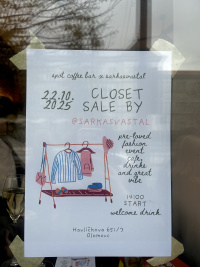 spot coffee bar x sarkasvastal
22.10.
2025
CLOSET
SALE BY
@SARKASVASTAL
pre-loved
fashion
event,
cafe,
drinks
and great
vibe
14:00
START
welcome drink
Havlíčkova 651/3
Olomouc